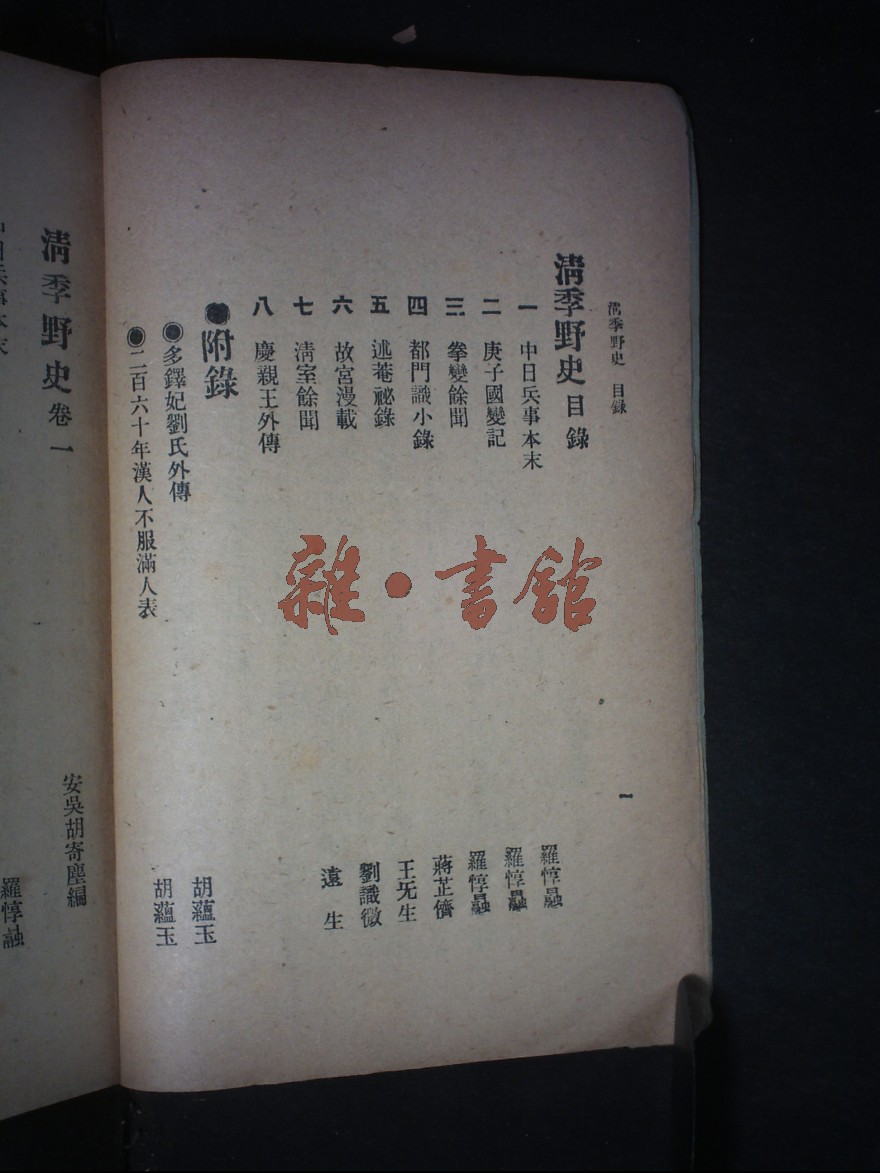 清季野史 目錄
一
清季野史目錄
一 中日兵事本末 羅惇曧
二 庚子國變記 羅惇曧
三 拳變餘聞 羅惇曧
四 都門識小錄 蔣芷儕
五 述菴祕錄 王无生
六 故宮漫載 劉識微
七 淸室餘聞 遠生
八 慶親王外傳
●附錄
●多鐸妃劉氏外傳 胡蘊玉
●二百六十年漢人不服滿人表 胡蘊玉
清季野史卷一
安吳胡寄塵編
中日兵事本末 羅惇曧
雜·書館